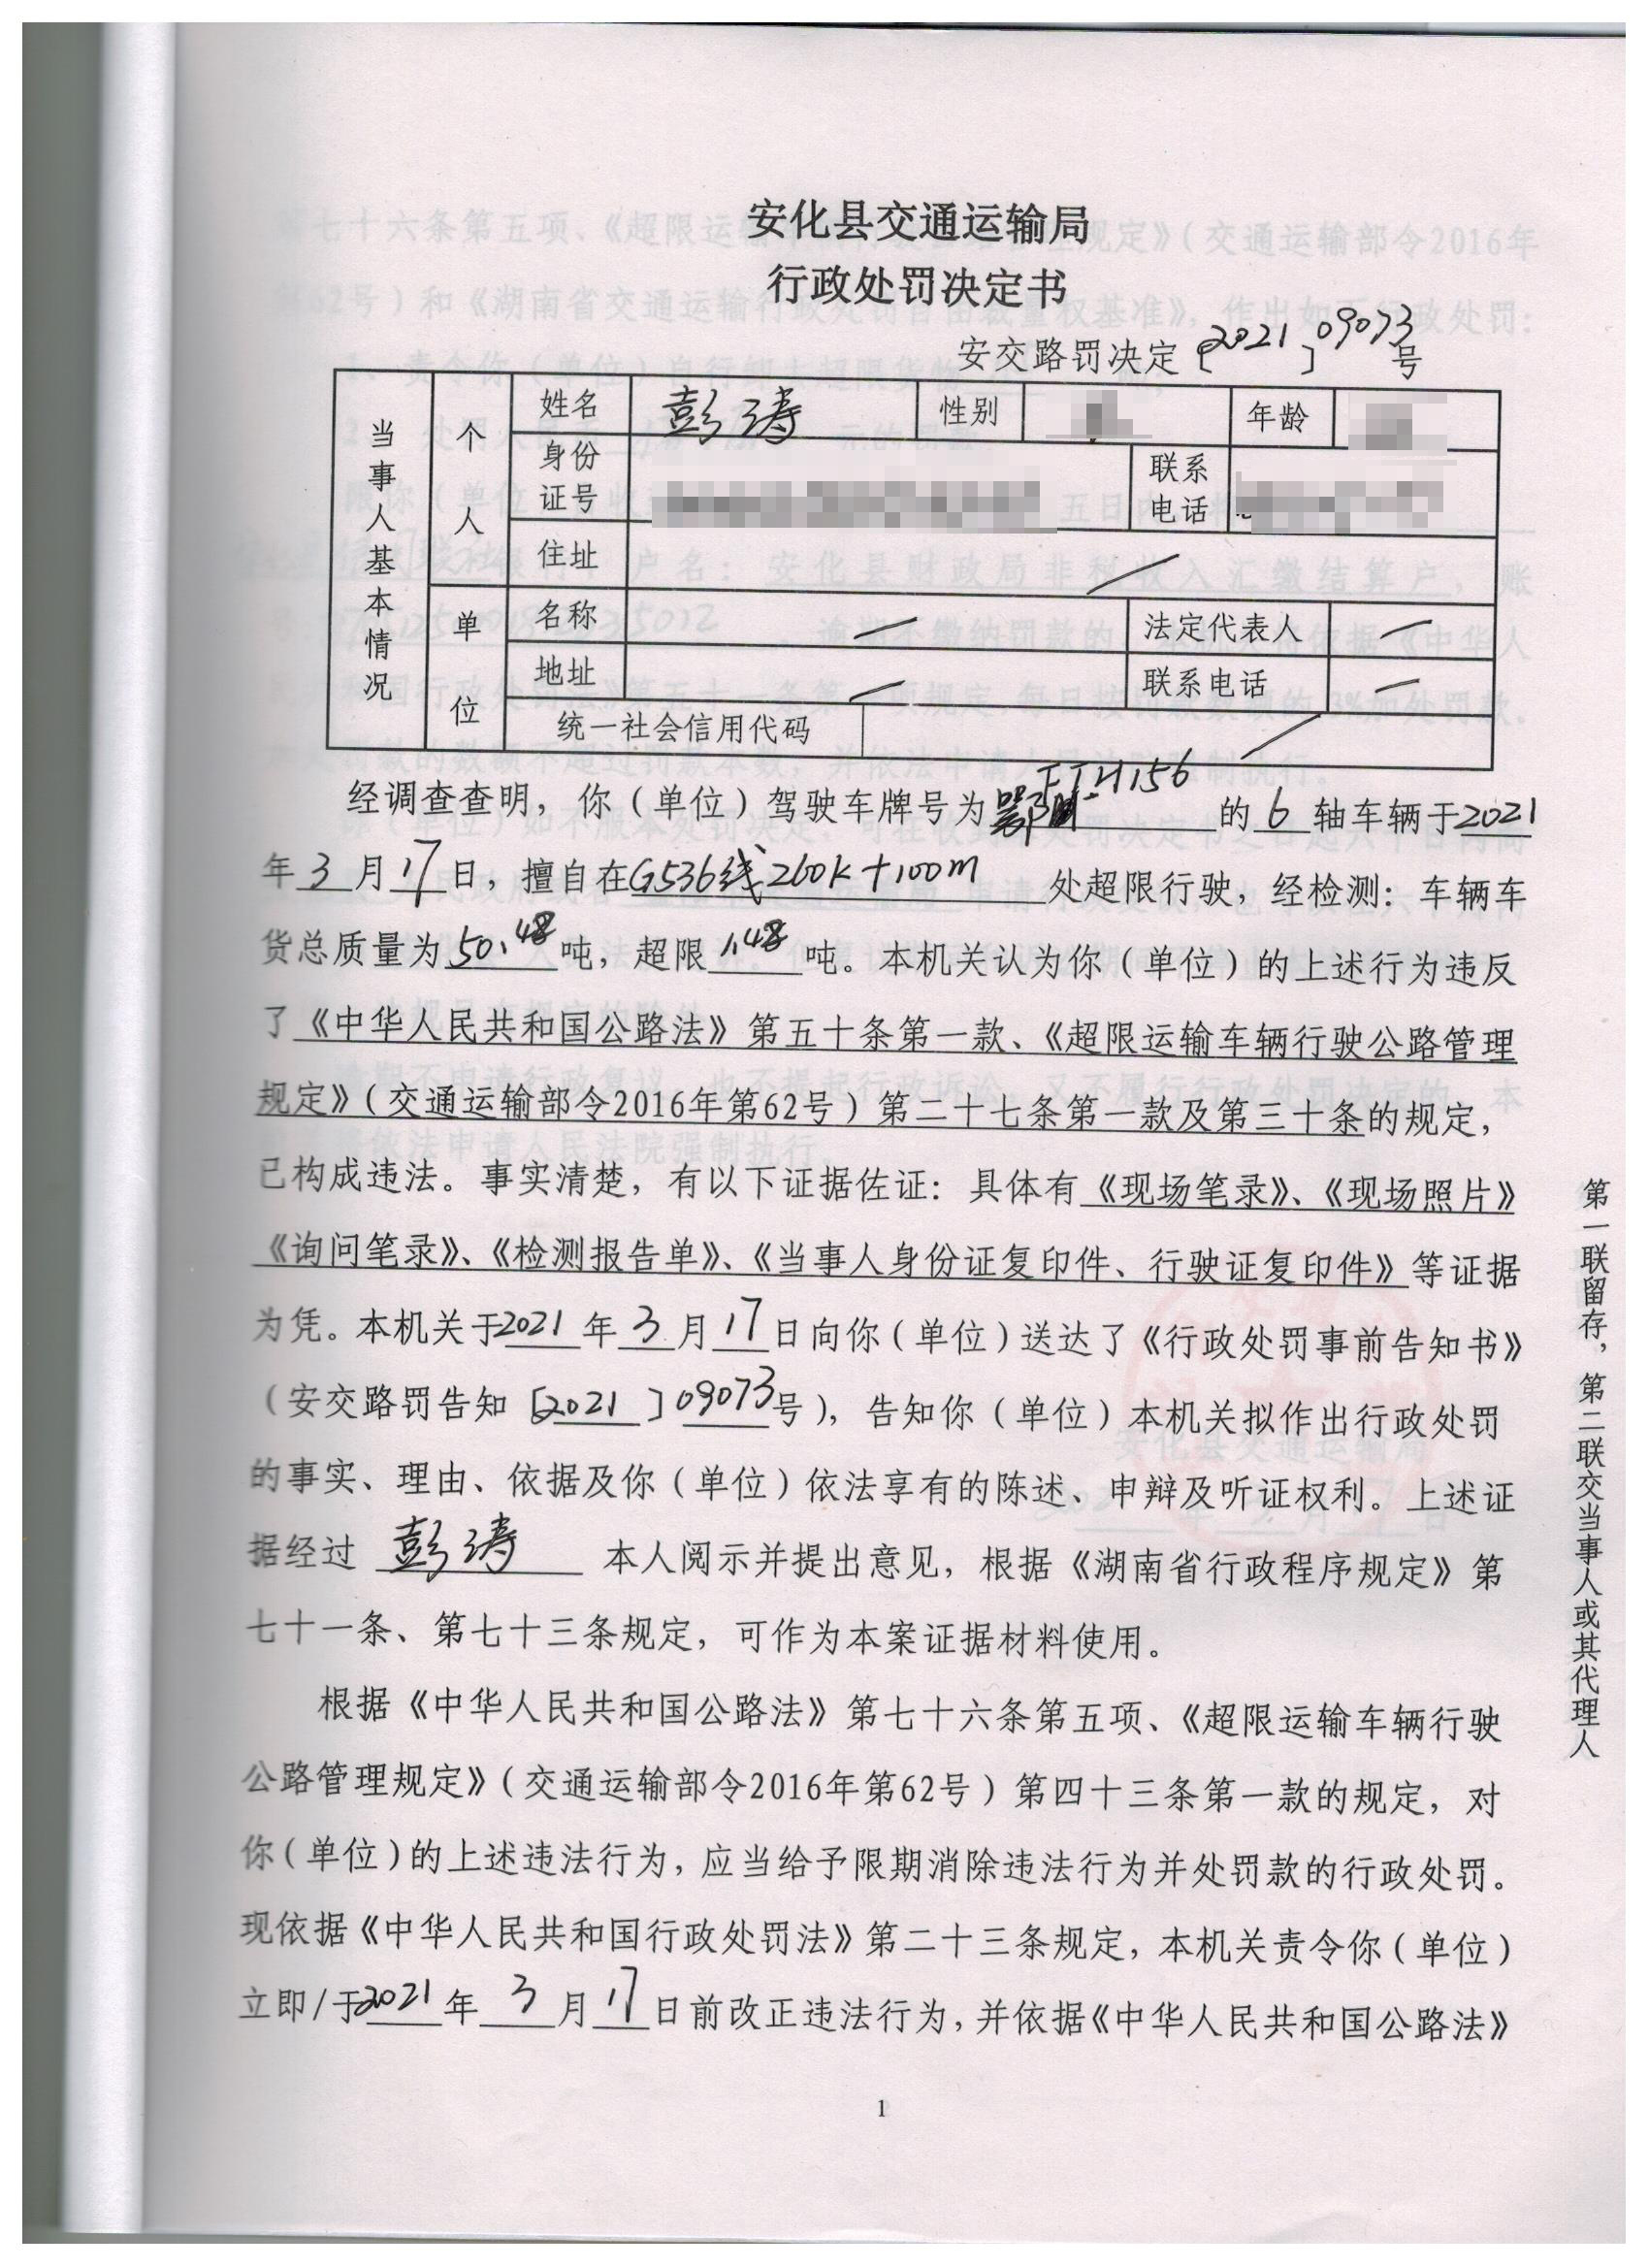 安化县交通运输局
行政处罚决定书
安交路罚决定〔2021〕09073号
当事人基本情况
个人
姓名 彭涛 性别 年龄
身份证号 联系电话
住址 /
单位
名称 / 法定代表人 /
地址 / 联系电话 /
统一社会信用代码 /
经调查查明，你（单位）驾驶车牌号为鄂FJH156的6轴车辆于2021
年3月17日，擅自在G536线260K+100m处超限行驶，经检测：车辆车
货总质量为50.48吨，超限1.48吨。本机关认为你（单位）的上述行为违反
了《中华人民共和国公路法》第五十条第一款、《超限运输车辆行驶公路管理
规定》（交通运输部令2016年第62号）第二十七条第一款及第三十条的规定，
已构成违法。事实清楚，有以下证据佐证：具体有《现场笔录》、《现场照片》
《询问笔录》、《检测报告单》、《当事人身份证复印件、行驶证复印件》等证据
为凭。本机关于2021年3月17日向你（单位）送达了《行政处罚事前告知书》
（安交路罚告知〔2021〕09073号），告知你（单位）本机关拟作出行政处罚
的事实、理由、依据及你（单位）依法享有的陈述、申辩及听证权利。上述证
据经过 彭涛 本人阅示并提出意见，根据《湖南省行政程序规定》第
七十一条、第七十三条规定，可作为本案证据材料使用。
根据《中华人民共和国公路法》第七十六条第五项、《超限运输车辆行驶
公路管理规定》（交通运输部令2016年第62号）第四十三条第一款的规定，对
你（单位）的上述违法行为，应当给予限期消除违法行为并处罚款的行政处罚。
现依据《中华人民共和国行政处罚法》第二十三条规定，本机关责令你（单位）
立即/于2021年3月17日前改正违法行为，并依据《中华人民共和国公路法》
1
第一联留存，第二联交当事人或其代理人